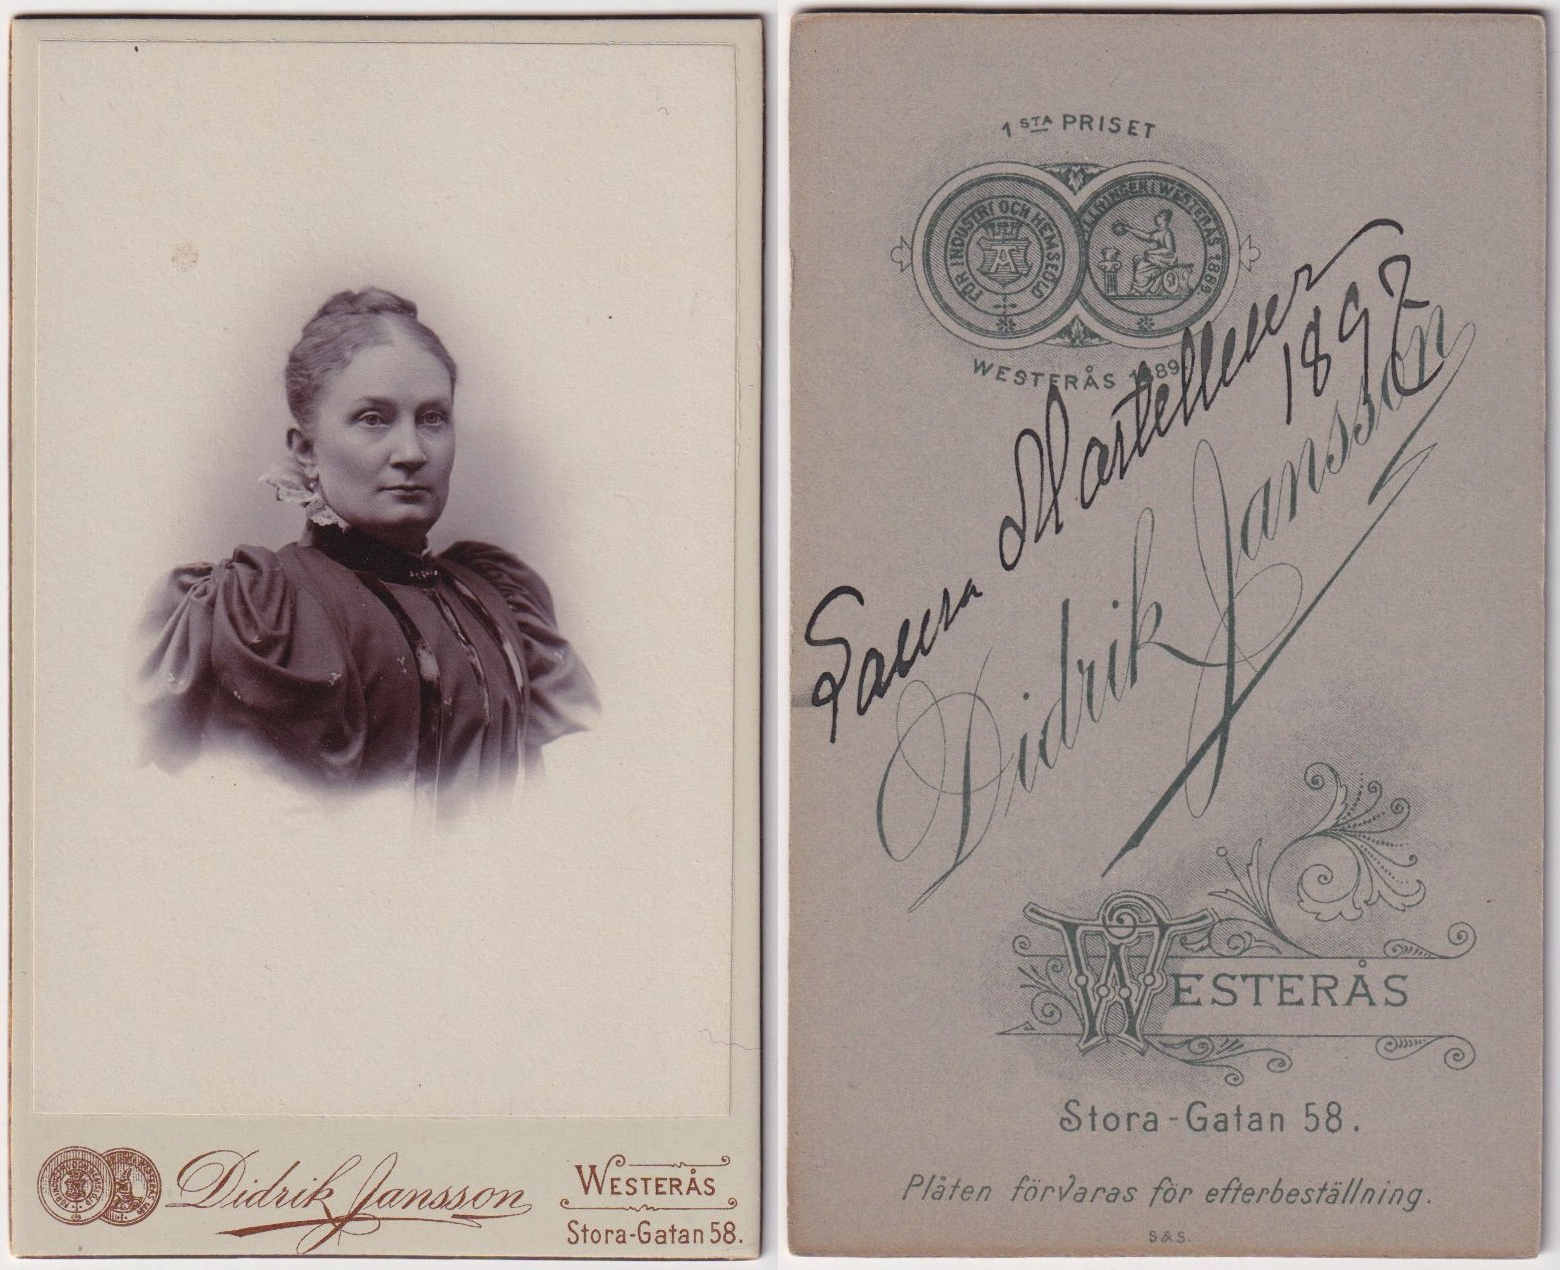 Didrik Jansson
WESTERÅS
Stora-Gatan 58.
1 STA PRISET
FÖR INDUSTRI OCH HEMSLÖJD
WESTERÅS 1889
WESTERÅS 1889
Laura
1897
Didrik Jansson
WESTERÅS
Stora-Gatan 58.
Plåten förvaras för efterbeställning.
S & S.